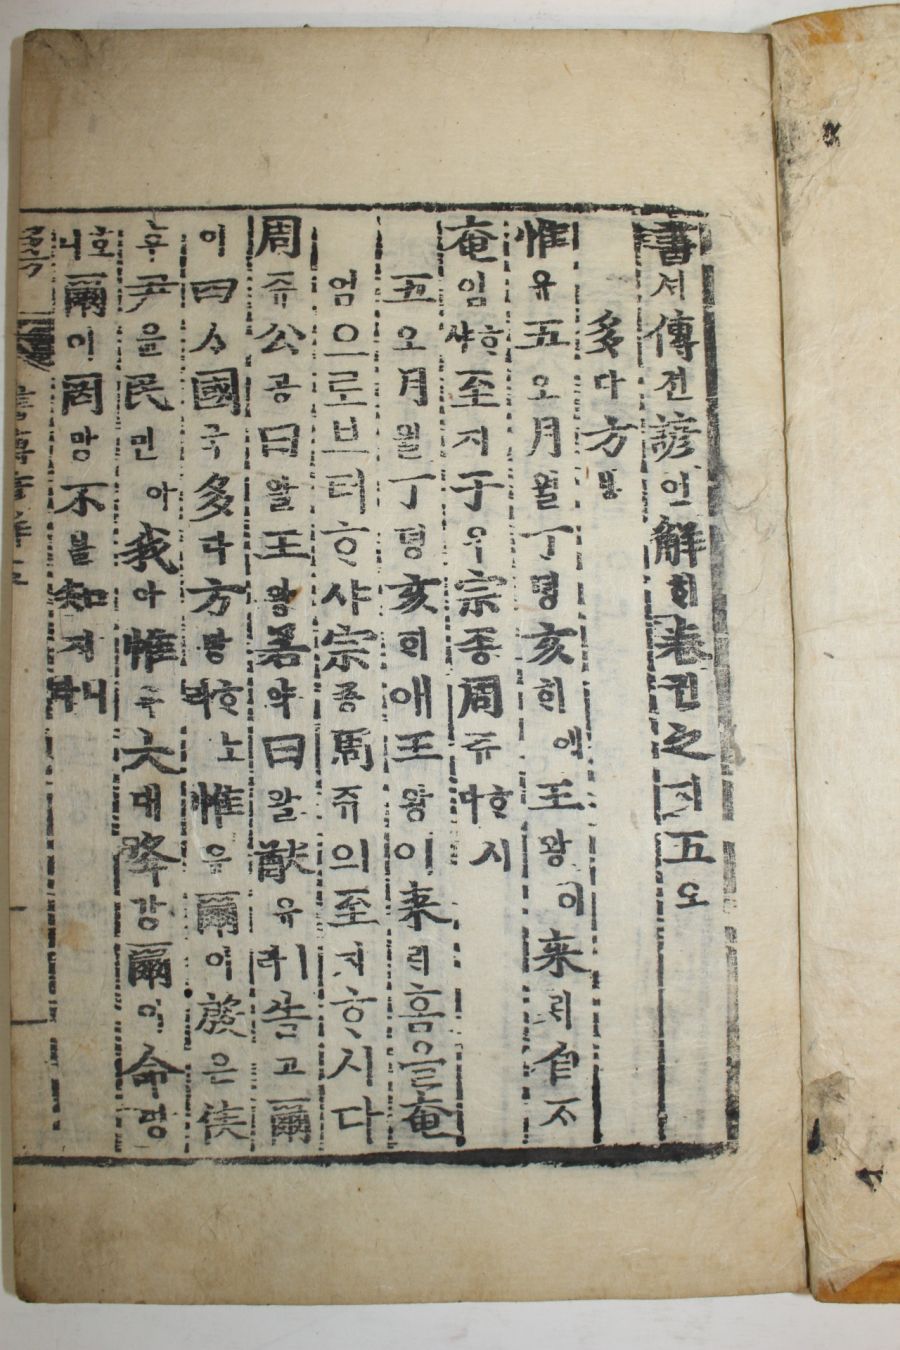 書셔傳젼諺언解ᄒᆡ卷권之지五오
多다方방
惟유五오月월丁뎡亥ᄒᆡ예王왕이來ᄅᆡ自ᄌᆞ
奄엄ᄒᆞ샤至지于우宗종周쥬ᄒᆞ시다
五오月월丁뎡亥ᄒᆡ애王왕이來ᄅᆡᄒᆞᆷ을奄
엄으로브터ᄒᆞ샤宗종周쥬의至지ᄒᆞ시다
周쥬公공曰왈王왕若약曰왈猷유ㅣ라告고爾
이四ᄉᆞ國국多다方방ᄒᆞ노라惟유爾이殷은侯
후尹윤民민아我아惟유大대降강爾이命명
호니爾이罔망不블知지니라